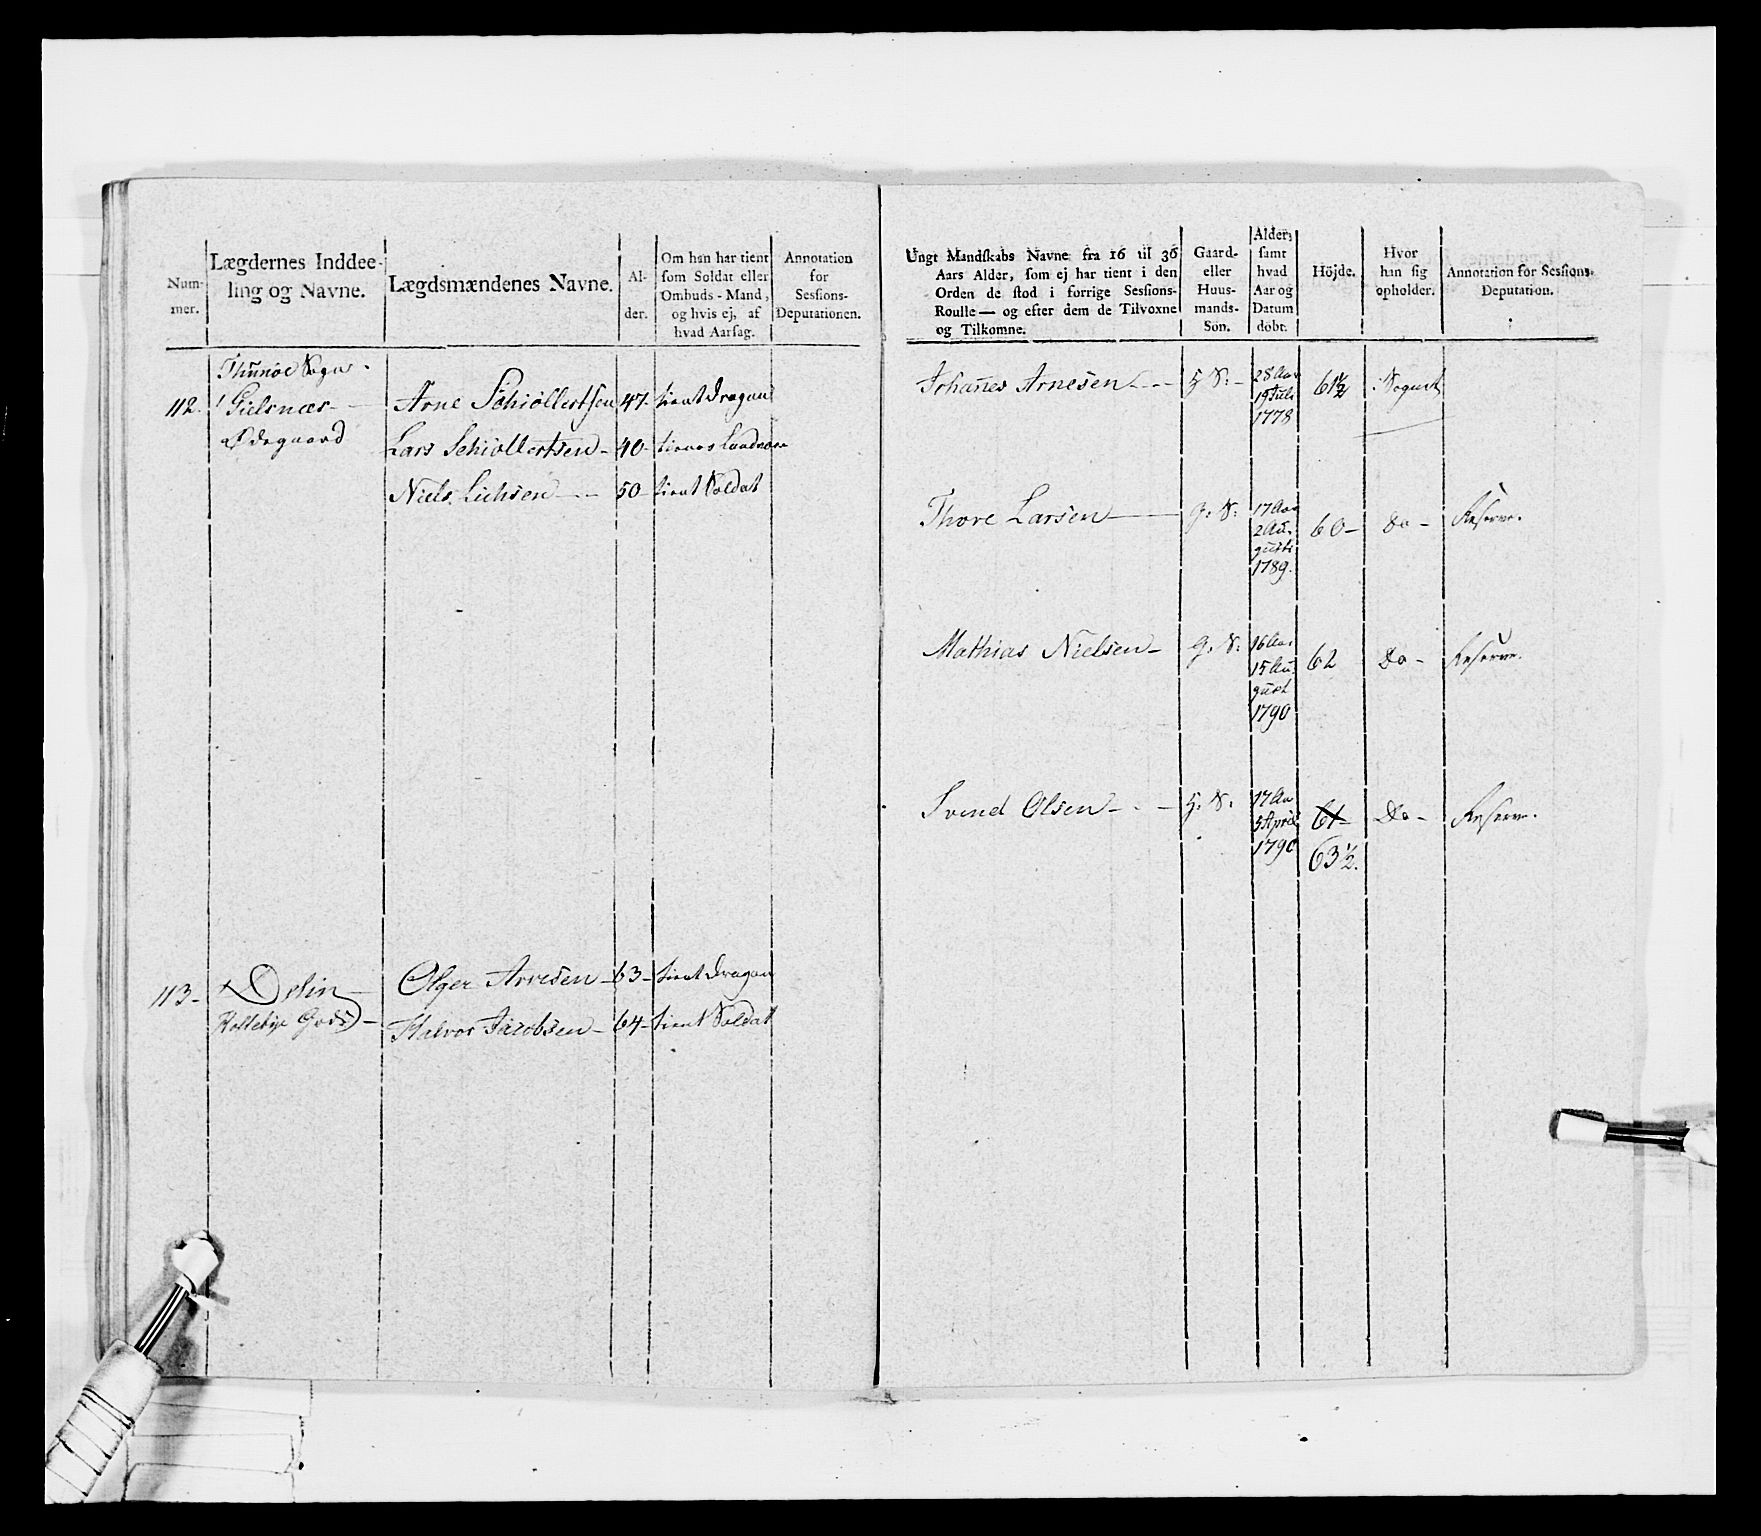 Num-
mer.
Lægdernes Inddee-
ling og Navne.
Lægdsmændenes Navne.
Al-
der.
Om han har tient
som Soldat eller
Ombuds-Mand,
og hvis ej, af
hvad Aarsag.
Annotation
for
Sessions-
Deputationen.
Thunøe Sogn
112. Gielsnæs Arne Schiöllertsen 47. tient Dragon
Ødegaard Lars Schiöllertsen 40 Landvær
Niels 50 tient Soldat
113 Delin Olger Arnesen 63 tient Dragon
Gods Halvor Jacobsen 64 tient Soldat
Ungt Mandskabs Navne fra 16 til 36
Aars Alder, som ej har tient i den
Orden de stod i forrige Sessions-
Roulle — og efter dem de Tilvoxne
og Tilkomne.
Gaard-
eller
Huus-
mands-
Sön.
Alder,
samt
hvad
Aar og
Datum
döbt.
Höjde.
Hvor
han sig
opholder.
Annotation for Sessions-
Deputation.
Johanes Arnesen G. S. 28 Aar 61½ i Sognet
19 Juli
1778
Thore Larsen G. S. 17 Aar 60 Do Reserve.
2 Au-
gusti
1789.
Mathias Nielsen G. S. 16 Aar 62 Do Reserve.
15 Au-
gust
1790
Svend Olsen G. S. 17 Aar 61 Do Reserve.
5 April
1790 63½.